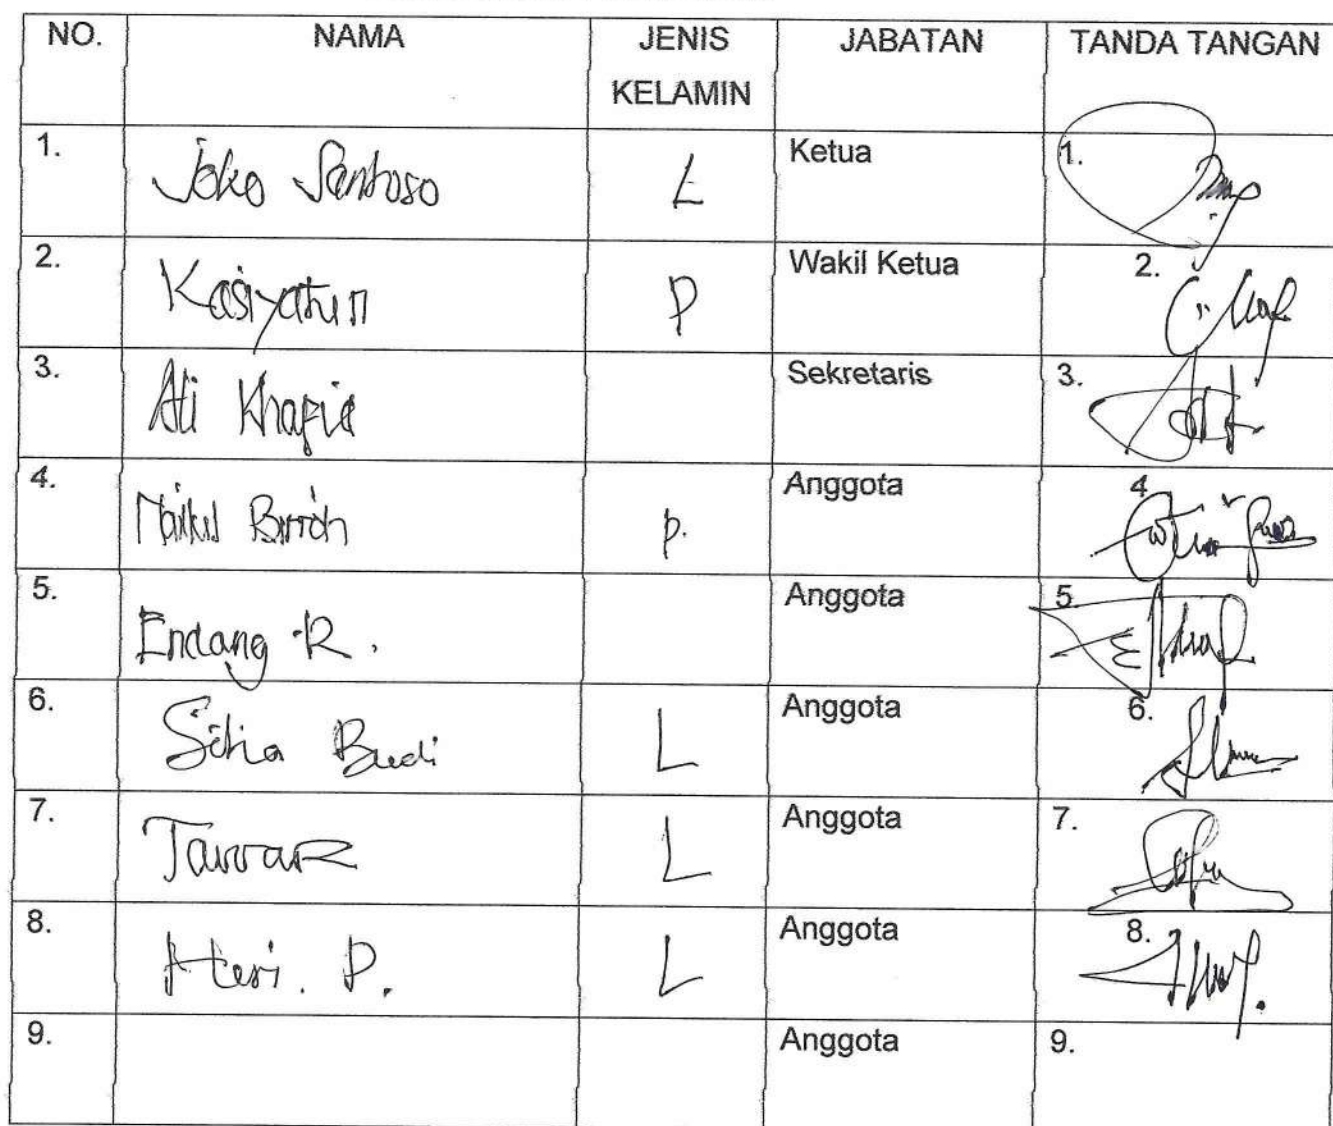 NO. NAMA JENIS KELAMIN JABATAN TANDA TANGAN
1. Joko Santoso L Ketua 1.
2. Kasiyatun P Wakil Ketua 2.
3. Ali Khafid Sekretaris 3.
4. P. Anggota 4
5. Endang R. Anggota 5.
6. Setia Budi L Anggota 6.
7. L Anggota 7.
8. Heri. P. L Anggota 8.
9. Anggota 9.